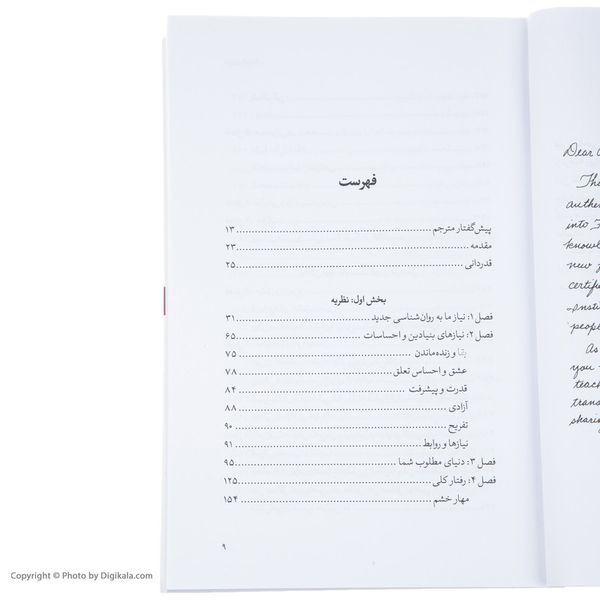 فهرست
پیش‌گفتار مترجم ........ ۱۳
مقدمه ........ ۲۳
قدردانی ........ ۲۵
بخش اول: نظریه
فصل ۱: نیاز ما به روان‌شناسی جدید ........ ۳۱
فصل ۲: نیازهای بنیادین و احساسات ........ ۶۵
بقا و زنده‌ماندن ........ ۷۵
عشق و احساس تعلق ........ ۷۸
قدرت و پیشرفت ........ ۸۴
آزادی ........ ۸۸
تفریح ........ ۹۰
نیازها و روابط ........ ۹۱
فصل ۳: دنیای مطلوب شما ........ ۹۵
فصل ۴: رفتار کلی ........ ۱۲۵
مهار خشم ........ ۱۵۴
۹
Dear
authe
into F
knowl
new
certif
Insti
peopl
As
you
teach
trans
sharin
Copyright © Photo by Digikala.com